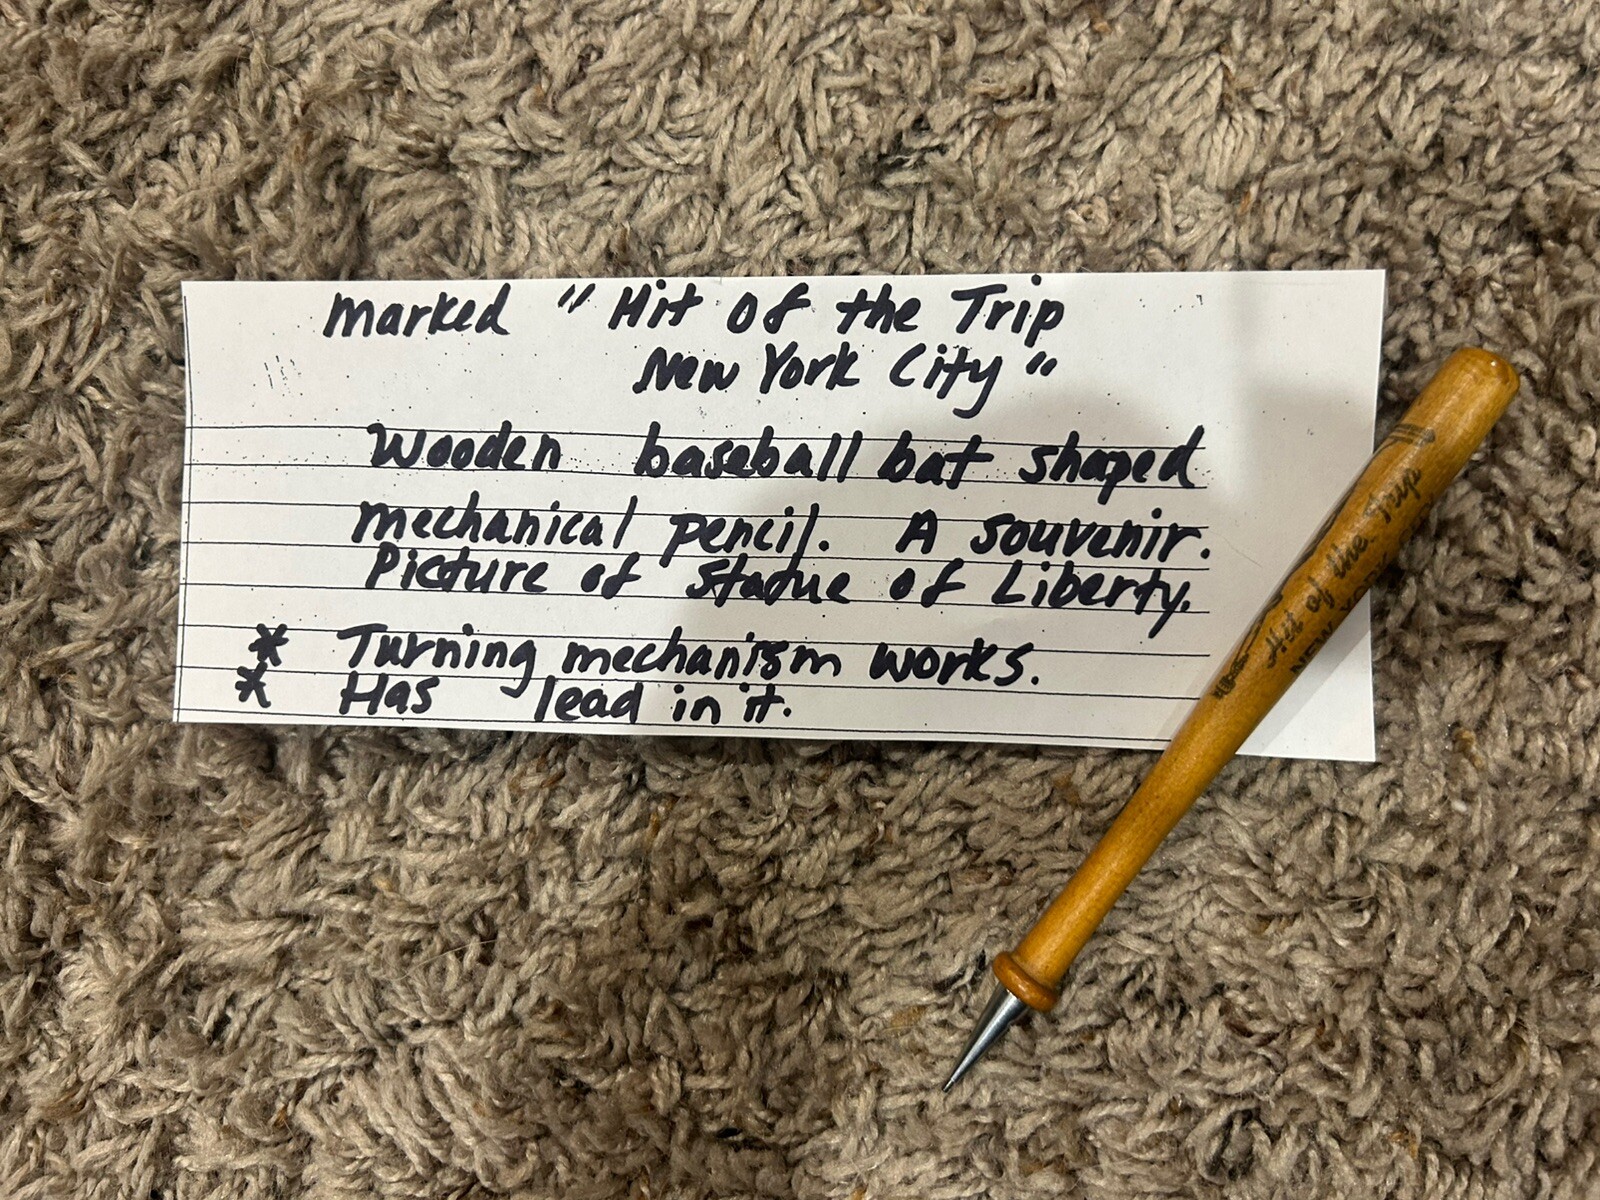 marked " Hit of the Trip
New York City "
Wooden baseball bat shaped
mechanical pencil. A souvenir.
Picture of Statue of Liberty.
* Turning mechanism works.
* Has lead in it.
Hit of the Trip
NEW YORK